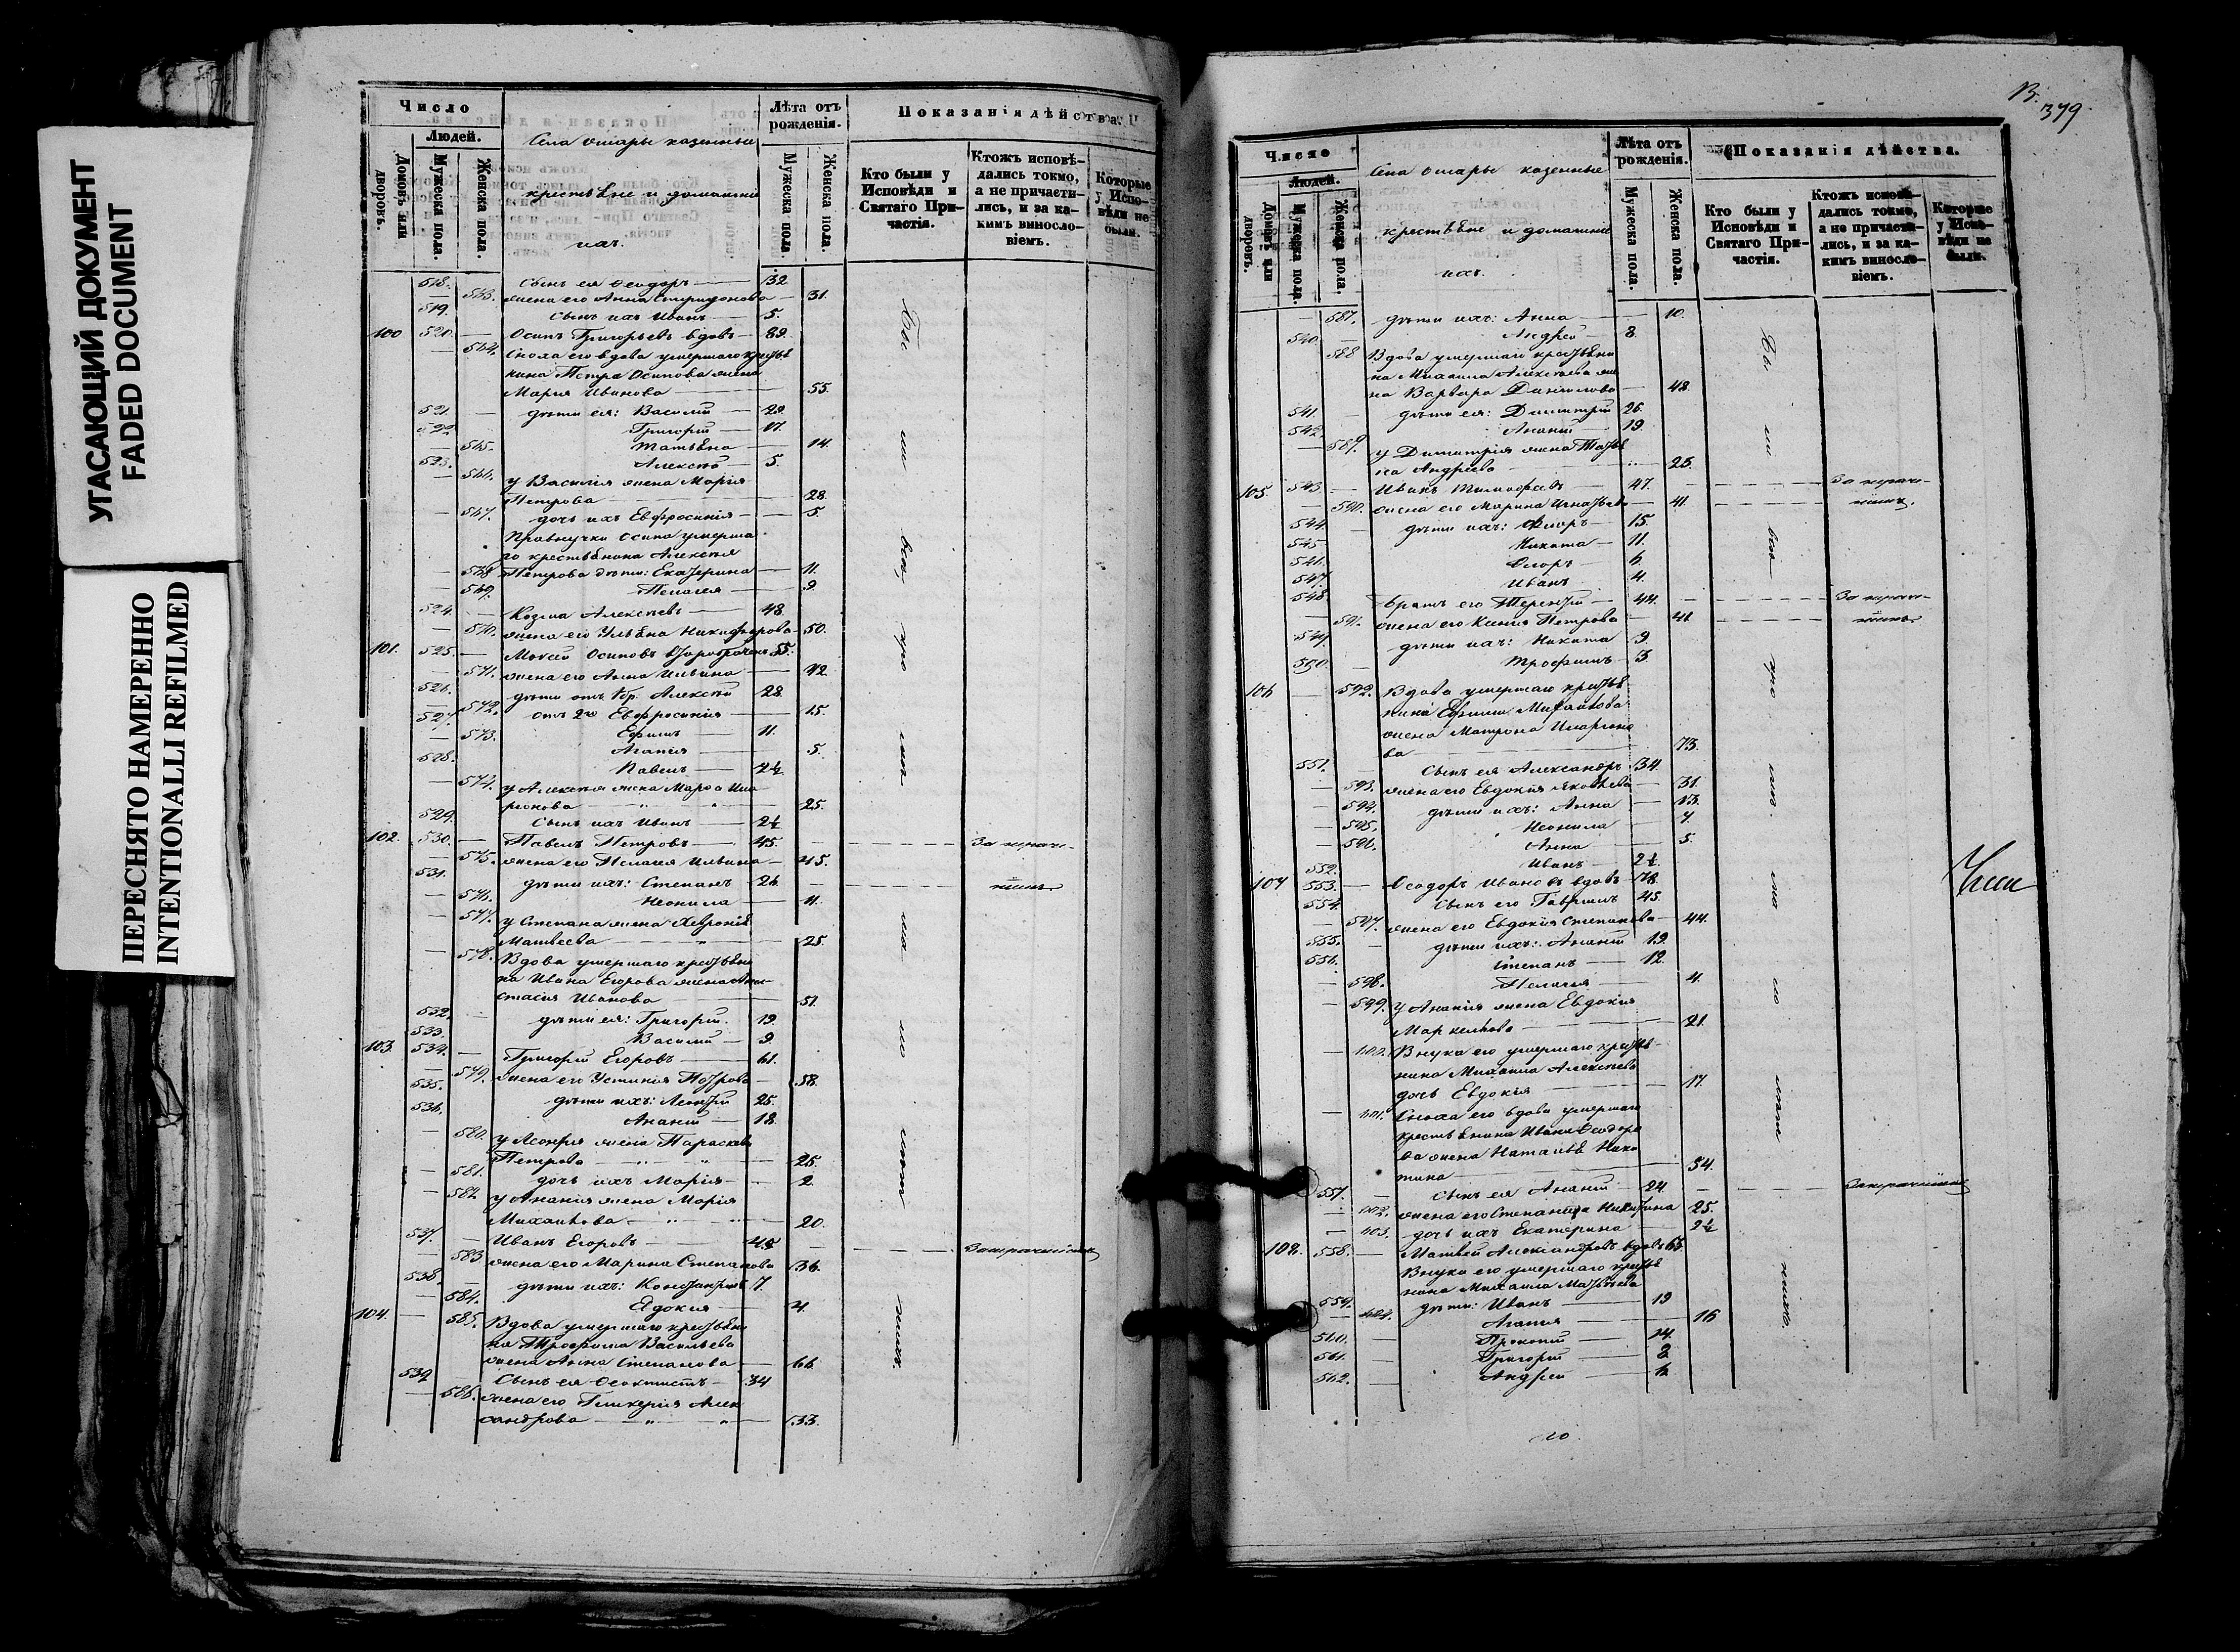 УГАСАЮЩИЙ ДОКУМЕНТ
FADED DOCUMENT
ПЕРЕСНЯТО НАМЕРЕННО
INTENTIONALLI REFILMED
Число
Людей.
Домовъ или дворовъ.
Мужеска пола.
Женска пола.
Села Отары казенные
крестьяне и домашніе
ихъ.
Лѣта отъ рожденія.
Мужеска пола.
Женска пола.
Показанія дѣйства.
Кто были у Исповѣди и Святаго Причастія.
Ктожъ исповѣдались токмо, а не причастились, и за какимъ винословіемъ.
Которые у Исповѣди не были.
518. Сынъ ея Ѳеодоръ — 32
563. жена его Анна Спиридонова — 31.
519. Сынъ ихъ Иванъ — 5.
100 520. — Осипъ Григорьевъ вдовъ — 89.
564. Сноха его вдова умершаго крестья
нина Петра Осипова жена
Мария Иванова — 55.
521. — дѣти ея: Василій — 29.
522. Григорій — 17.
565. Татьяна — 14.
523. Алексѣй — 5.
566. у Василія жена Марія
Петрова — 28.
567. дочь ихъ Евфросинія — 5.
Правнучки Осипа умерша
го крестьянина Алексѣя
568 Петрова дѣти: Екатерина — 11.
569. Пелагея — 9.
524. — Козма Алексѣевъ — 48.
570. жена его Ульяна Никифорова — 50.
101. 525. — Моисей Осиповъ 55.
571. жена его Анна Ильина — 42.
526. дѣти отъ Алексѣй 28.
572. отъ 2го Евфросинія — 15.
527. Ефимъ — 11.
573. Агапія — 5.
528. Павелъ — 2½
574. у Алексѣя жена Марѳа Ила
ріонова — 25.
529. Сынъ ихъ Иванъ — 2½
102. 530. — Павелъ Петровъ — 45. За
575. жена его Пелагія Ильина — 45.
531. дѣти ихъ: Степанъ — 26.
576. Неонила — 11.
577. у Степана жена Хевронія
Матвеева — 25.
578. Вдова умершаго крестьяни
на Ивана Егорова жена Анас
стасія Иванова — 51.
532. — дѣти ея: Григорій. 19
533. Василій — 9.
103. 534. — Григорій Егоровъ — 61.
579. жена его Устинія Петрова — 58.
535. дѣти ихъ: Леонтій 25.
536. Ананій — 18.
580. у Леонтія жена Параскева
Петрова — 25.
581. дочь ихъ Марія — 2
582 у Ананія жена Марія
Михайлова — 20.
537. — Иванъ Егоровъ — 45
583 жена его Марина Степанова 36.
538. — дѣти ихъ: Константинъ 7.
584. Евдокия — 4.
104. — 585. Вдова умершаго крестьяни
на Трофима Васильева
жена Анна Степанова — 66.
539 Сынъ ея Ѳеоктистъ — 34
586. жена его Гликерія Алек
сандрова — 33.
Бы
ли
всѣ,
кро
379
Число
Людей.
Домовъ или дворовъ.
Мужеска пола.
Женска пола.
Села Отары казенные
крестьяне и домашніе
ихъ.
Лѣта отъ рожденія.
Мужеска пола.
Женска пола.
Показанія дѣйства.
Кто были у Исповѣди и Святаго Причастія.
Ктожъ исповѣдались токмо, а не причастились, и за какимъ винословіемъ.
Которые у Исповѣди не были.
587. дѣти ихъ: Анна — 10.
540. Андрей — 8.
588 Вдова умершаго крестьяни
на Михаила Алексѣева же
на Варвара Данилова — 48.
541. — дѣти ея: Димитрій 26.
542. Ананій — 19.
589. у Димитрія жена Татья
на Андреева — 25.
105. 543. — Иванъ Тимофеевъ — 47. За
590. жена его Марина Игнатьева — 41.
544. — дѣти ихъ: Флоръ — 15.
545 Никита — 11.
546. Флоръ — 6.
547. Иванъ 4.
548. братъ его Терентій — 44. За
591. жена его Ксенія Петрова — 41
549. дѣти ихъ: Никита 9.
550. — Трофимъ 3.
106 — 592. Вдова умершаго крестья
нина Ефима Михайлова
жена Матрона Иларіоно
ва — 73.
551. Сынъ ея Александръ 34.
593. жена его Евдокія Яковлева — 31.
594. дѣти ихъ: Анна — 13.
595. Неонила — 7.
596. Анна — 5.
552. Иванъ — 2½.
107 553. — Ѳеодоръ Ивановъ вдовъ — 78.
554. Сынъ его Гавріилъ 45.
597. жена его Евдокія Степанова — 44.
555. — дѣти ихъ: Ананій 19.
556. Степанъ — 12.
598. Пелагія — 4.
599. у Ананія жена Евдокия
Маркелова — 21.
600. Внука его умершаго кресть
нина Михаила Алексѣева
дочь Евдокія — 17.
601. Сноха его вдова умершаго
крестьянина Ивана Ѳеодоро
ва жена Наталья Ники
тина — 54.
557. — Сынъ ея Ананій — 24.
602. жена его Степанида Никитина 25.
603. дочь ихъ Екатерина — 2½
108. 558. — Матвей Александровъ вдовъ 65.
Внуки его умершаго кресть
нина Михаила Матвѣева
559. дѣти: Иванъ — 19
604. Агапія — 16
560. — Прокопій — 14.
561. — Григорій —
562. — Андрей —
Бы
ли
всѣ
кро